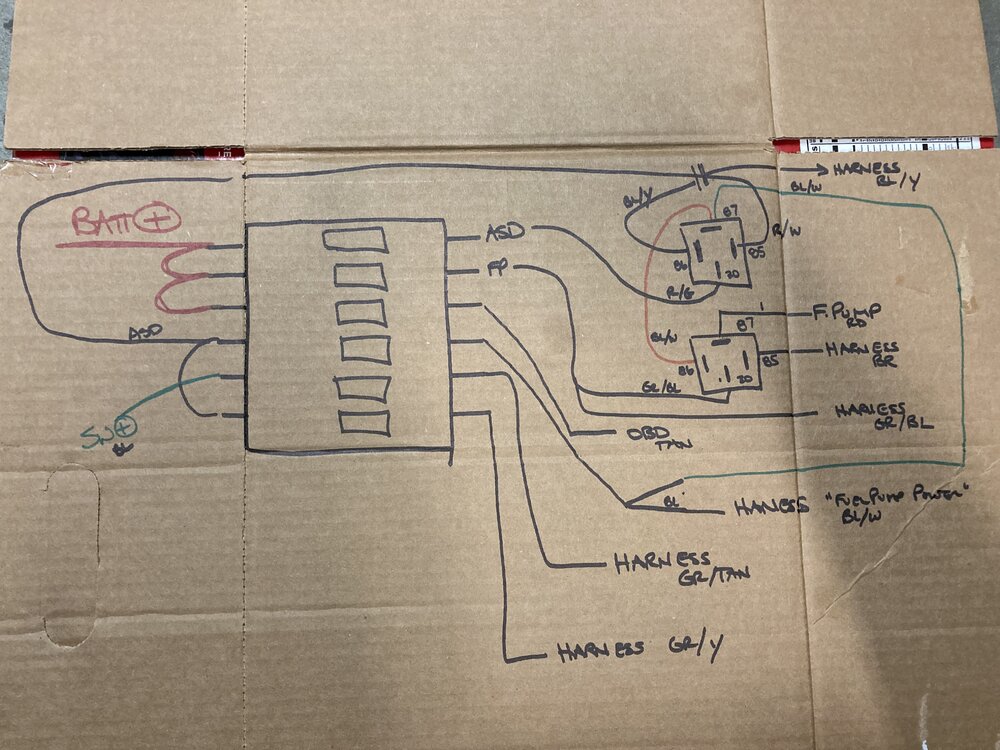 HARNESS
BL/Y
BL/W
BL/Y
87
R/W
BATT +
86
85
30
ASD
FP
R/G
ASD
F.PUMP
RD
87
BL/W
86
85
30
HARNESS
BR
GR/BL
HARNESS
GR/BL
SW +
OBD
TAN
BL
HANESS "FUEL PUMP POWER"
BL/W
HARNESS
GR/TAN
HARNESS GR/Y